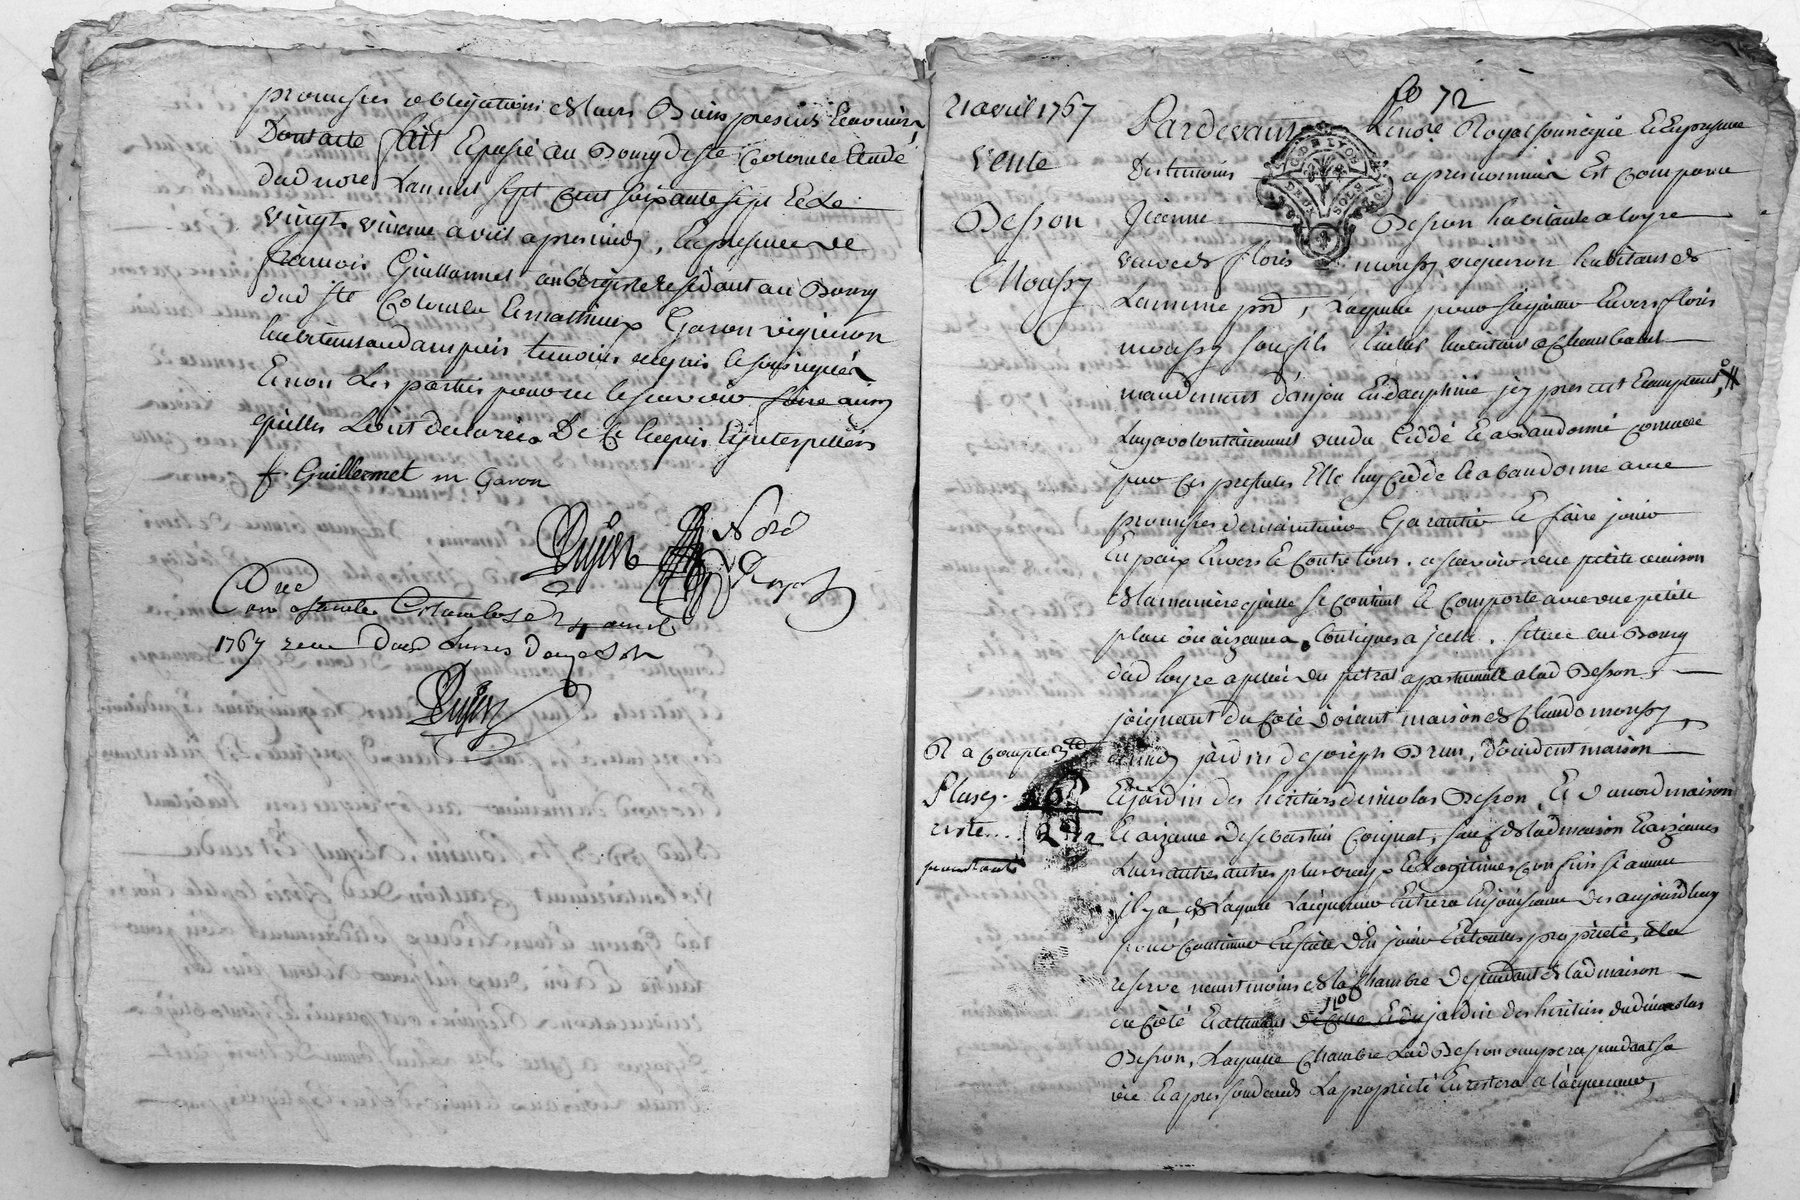 promesses obligations &lairs Biens presens Eavenirs
Dont acte fait Epassé au Bourg de Ste Colombe Etude
dud nore Lan mil sept cent soixante sept Ele
vingt unieme avril apres midy, En presence de
francois Guillermet aubergiste residant au Bourg
dud ste Colombe Emathieux Garon vigneron
habitant aud ampuis temoins requis Esoussignés
Enon Les parties pour ne le scavoir faire ainsy
quelles Lont declarées De Ce Enquis Einterpellées
f. Guillermet m Garon
Dujon
Nore
Royal
Cve a sainte Colombe le 24 avril
1767 recu Deux Livres Douze sols
Dujon
fo 72
21 avril 1767
vente
Besson
Moussy
Pardevant Lenore Royal soussigné Een presence
Des temoins apres nommés Est Comparue
Jeanne Besson habitante a loyre
veuve de floris moussy vigneron habitans &
La mme psse, Laquelle pour se jetter Envers floris
moussy son fils habitant a Chambalud
mandement d'anjou En dauphiné jcy present Eacceptant,
Luy a volontairement vendu Ceddé Eabandonné comme
par Ces presentes Elle luy Cedde Eabandonne avec
promesses de maintenir Garantir E faire jouir
En paix Envers E Contre tous. a scavoir une petite maison
&la maniere quelle se Contient E Comporte avec une petite
place ou aizance, Contigues a jcelle. située au Bourg
dud loyre appellée du petrat apartenante a lad Besson,
joignant du Coté d'orient maison & Claude moussy,
de midy jardin de joseph Brun, d'occident maison
Ejardin des heritiers de nicolas Besson, E d'au nord maison
Eaizance De sebastien Coignat, sauf &lad maison Eaizances
Leurs autres autres plus vrays E Legitimes Confins si aucuns
jl y a, & Laquelle Lacquereur Entrera En jouissance Des aujourdhuy
pour Continuer En suite d'En jouir En toutes propriété, a la
reserve neantmoins & la Chambre Dependante & lad maison
du Coté Eattenant jardin des heritiers dud nicolas
Besson, Laquelle Chambre Lad Besson occupera pendant sa
vie Eapres son deces La propriété En restera a lacquereur,
R a Compte
Plus
reste
pourtant